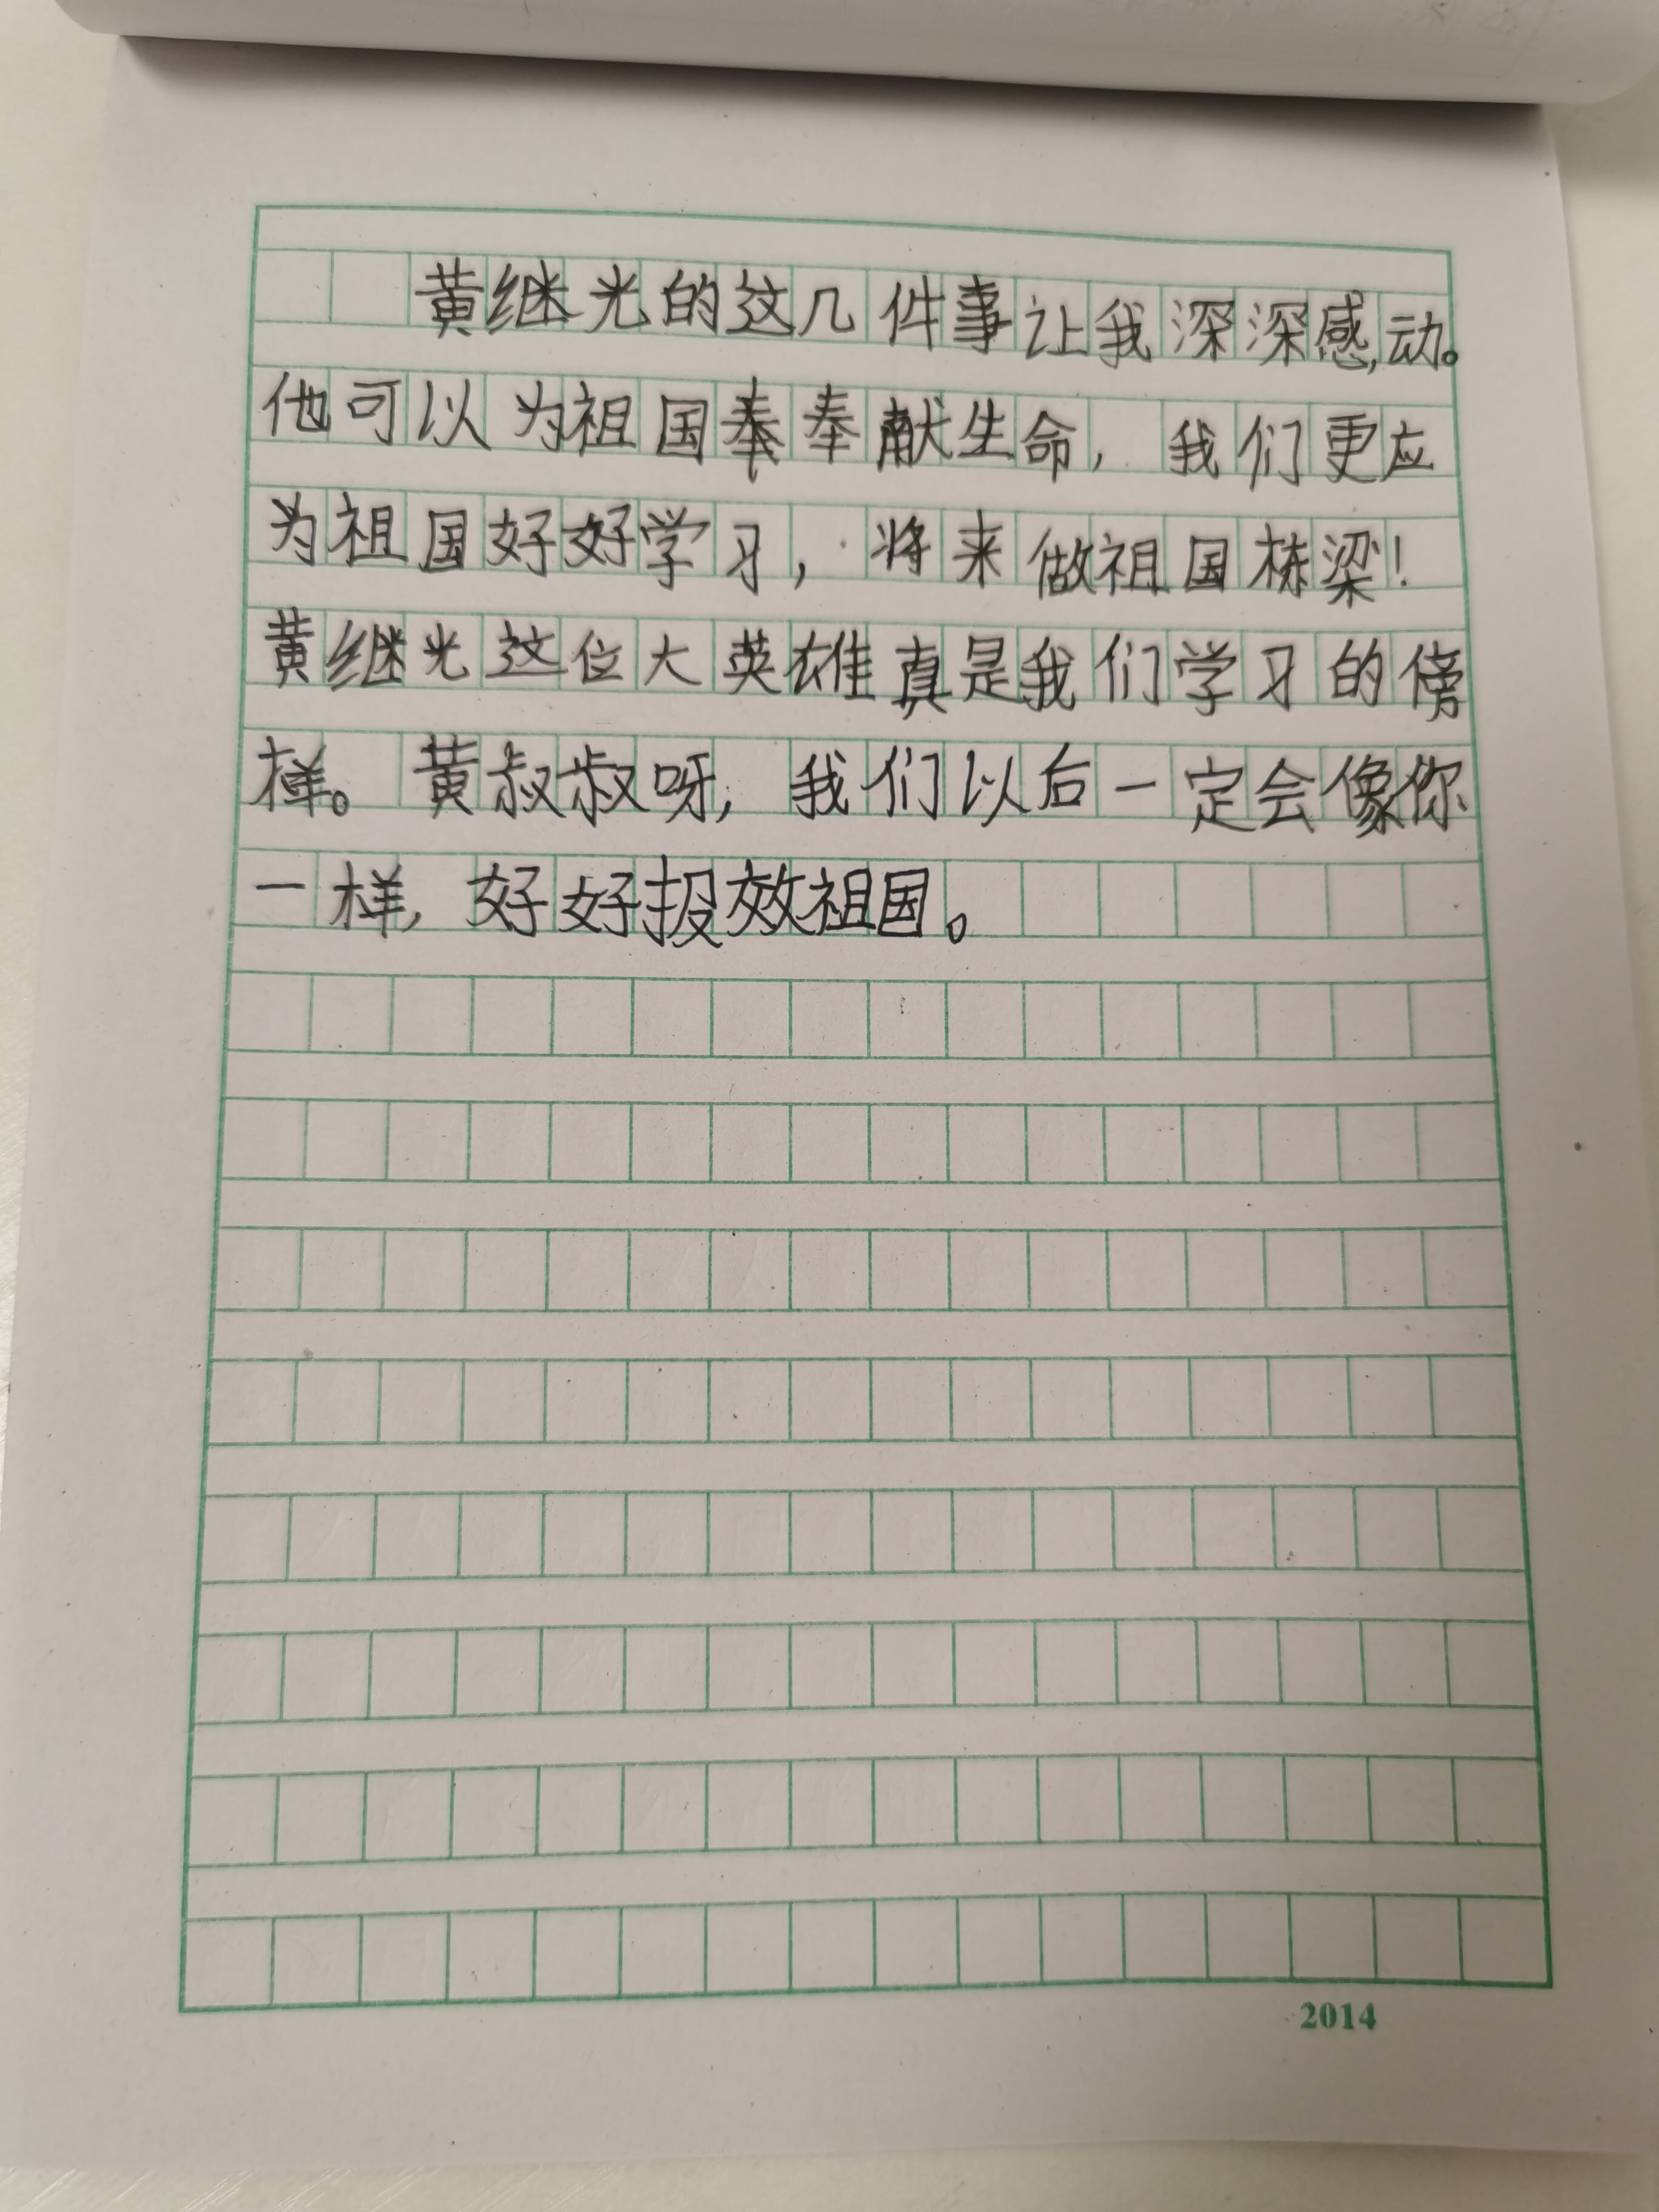 黄继光的这几件事让我深深感动。
他可以为祖国奉献生命，我们更应
为祖国好好学习，将来做祖国栋梁！
黄继光这位大英雄真是我们学习的傍
样。黄叔叔呀，我们以后一定会像你
一样，好好报效祖国。
2014